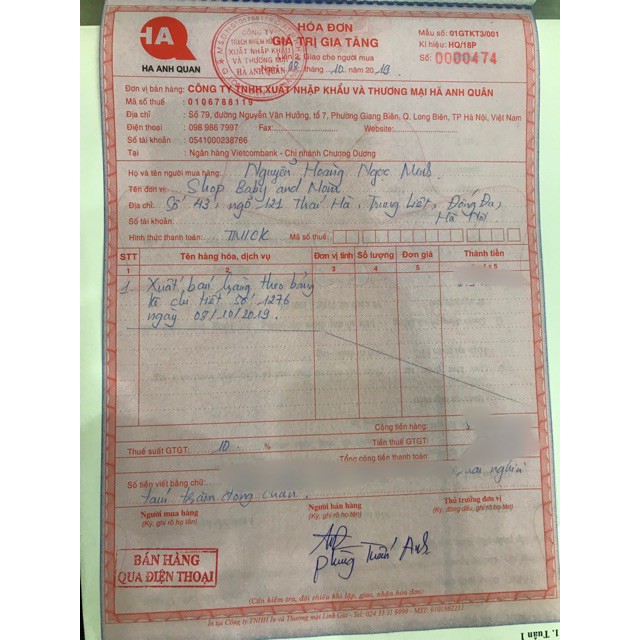 HA
HA ANH QUAN
HÓA ĐƠN
GIÁ TRỊ GIA TĂNG
Liên 2: Giao cho người mua
Ngày 08 tháng 10 năm 2019
Mẫu số: 01GTKT3/001
Kí hiệu: HQ/18P
Số: 0000474
CÔNG TY
TRÁCH NHIỆM HỮU
XUẤT NHẬP KHẨU
VÀ THƯƠNG MẠI
HÀ ANH QUÂN
Đơn vị bán hàng: CÔNG TY TNHH XUẤT NHẬP KHẨU VÀ THƯƠNG MẠI HÀ ANH QUÂN
Mã số thuế : 0106788119
Địa chỉ : Số 79, đường Nguyễn Văn Hưởng, tổ 7, Phường Giang Biên, Q. Long Biên, TP Hà Nội, Việt Nam
Điện thoại : 098 986 7997 Fax: Website:
Số tài khoản : 0541000238766
Tại : Ngân hàng Vietcombank - Chi nhánh Chương Dương
Họ và tên người mua hàng: Nguyễn Hoàng Ngọc Mai
Tên đơn vị: Shop Baby and Mom
Địa chỉ: Số 43, ngõ 121 Thái Hà, Trung Liệt, Đống Đa,
Hà Nội
Số tài khoản:
Hình thức thanh toán: TM/CK Mã số thuế:
STT Tên hàng hóa, dịch vụ Đơn vị tính Số lượng Đơn giá Thành tiền
1 2 3 4 5
1 Xuất bán hàng theo bảng
kê chi tiết số 1276
ngày 08/10/2019.
Cộng tiền hàng:
Thuế suất GTGT: 10 % Tiền thuế GTGT:
Tổng cộng tiền thanh toán:
Số tiền viết bằng chữ: nghìn
tám trăm đồng chẵn.
Người mua hàng Người bán hàng Thủ trưởng đơn vị
(Ký, ghi rõ họ tên) (Ký, ghi rõ họ tên) (Ký, đóng dấu, ghi rõ họ tên)
Phùng Tuấn Anh
BÁN HÀNG
QUA ĐIỆN THOẠI
(Cần kiểm tra, đối chiếu khi lập, giao, nhận hóa đơn)
1. Tuần 1